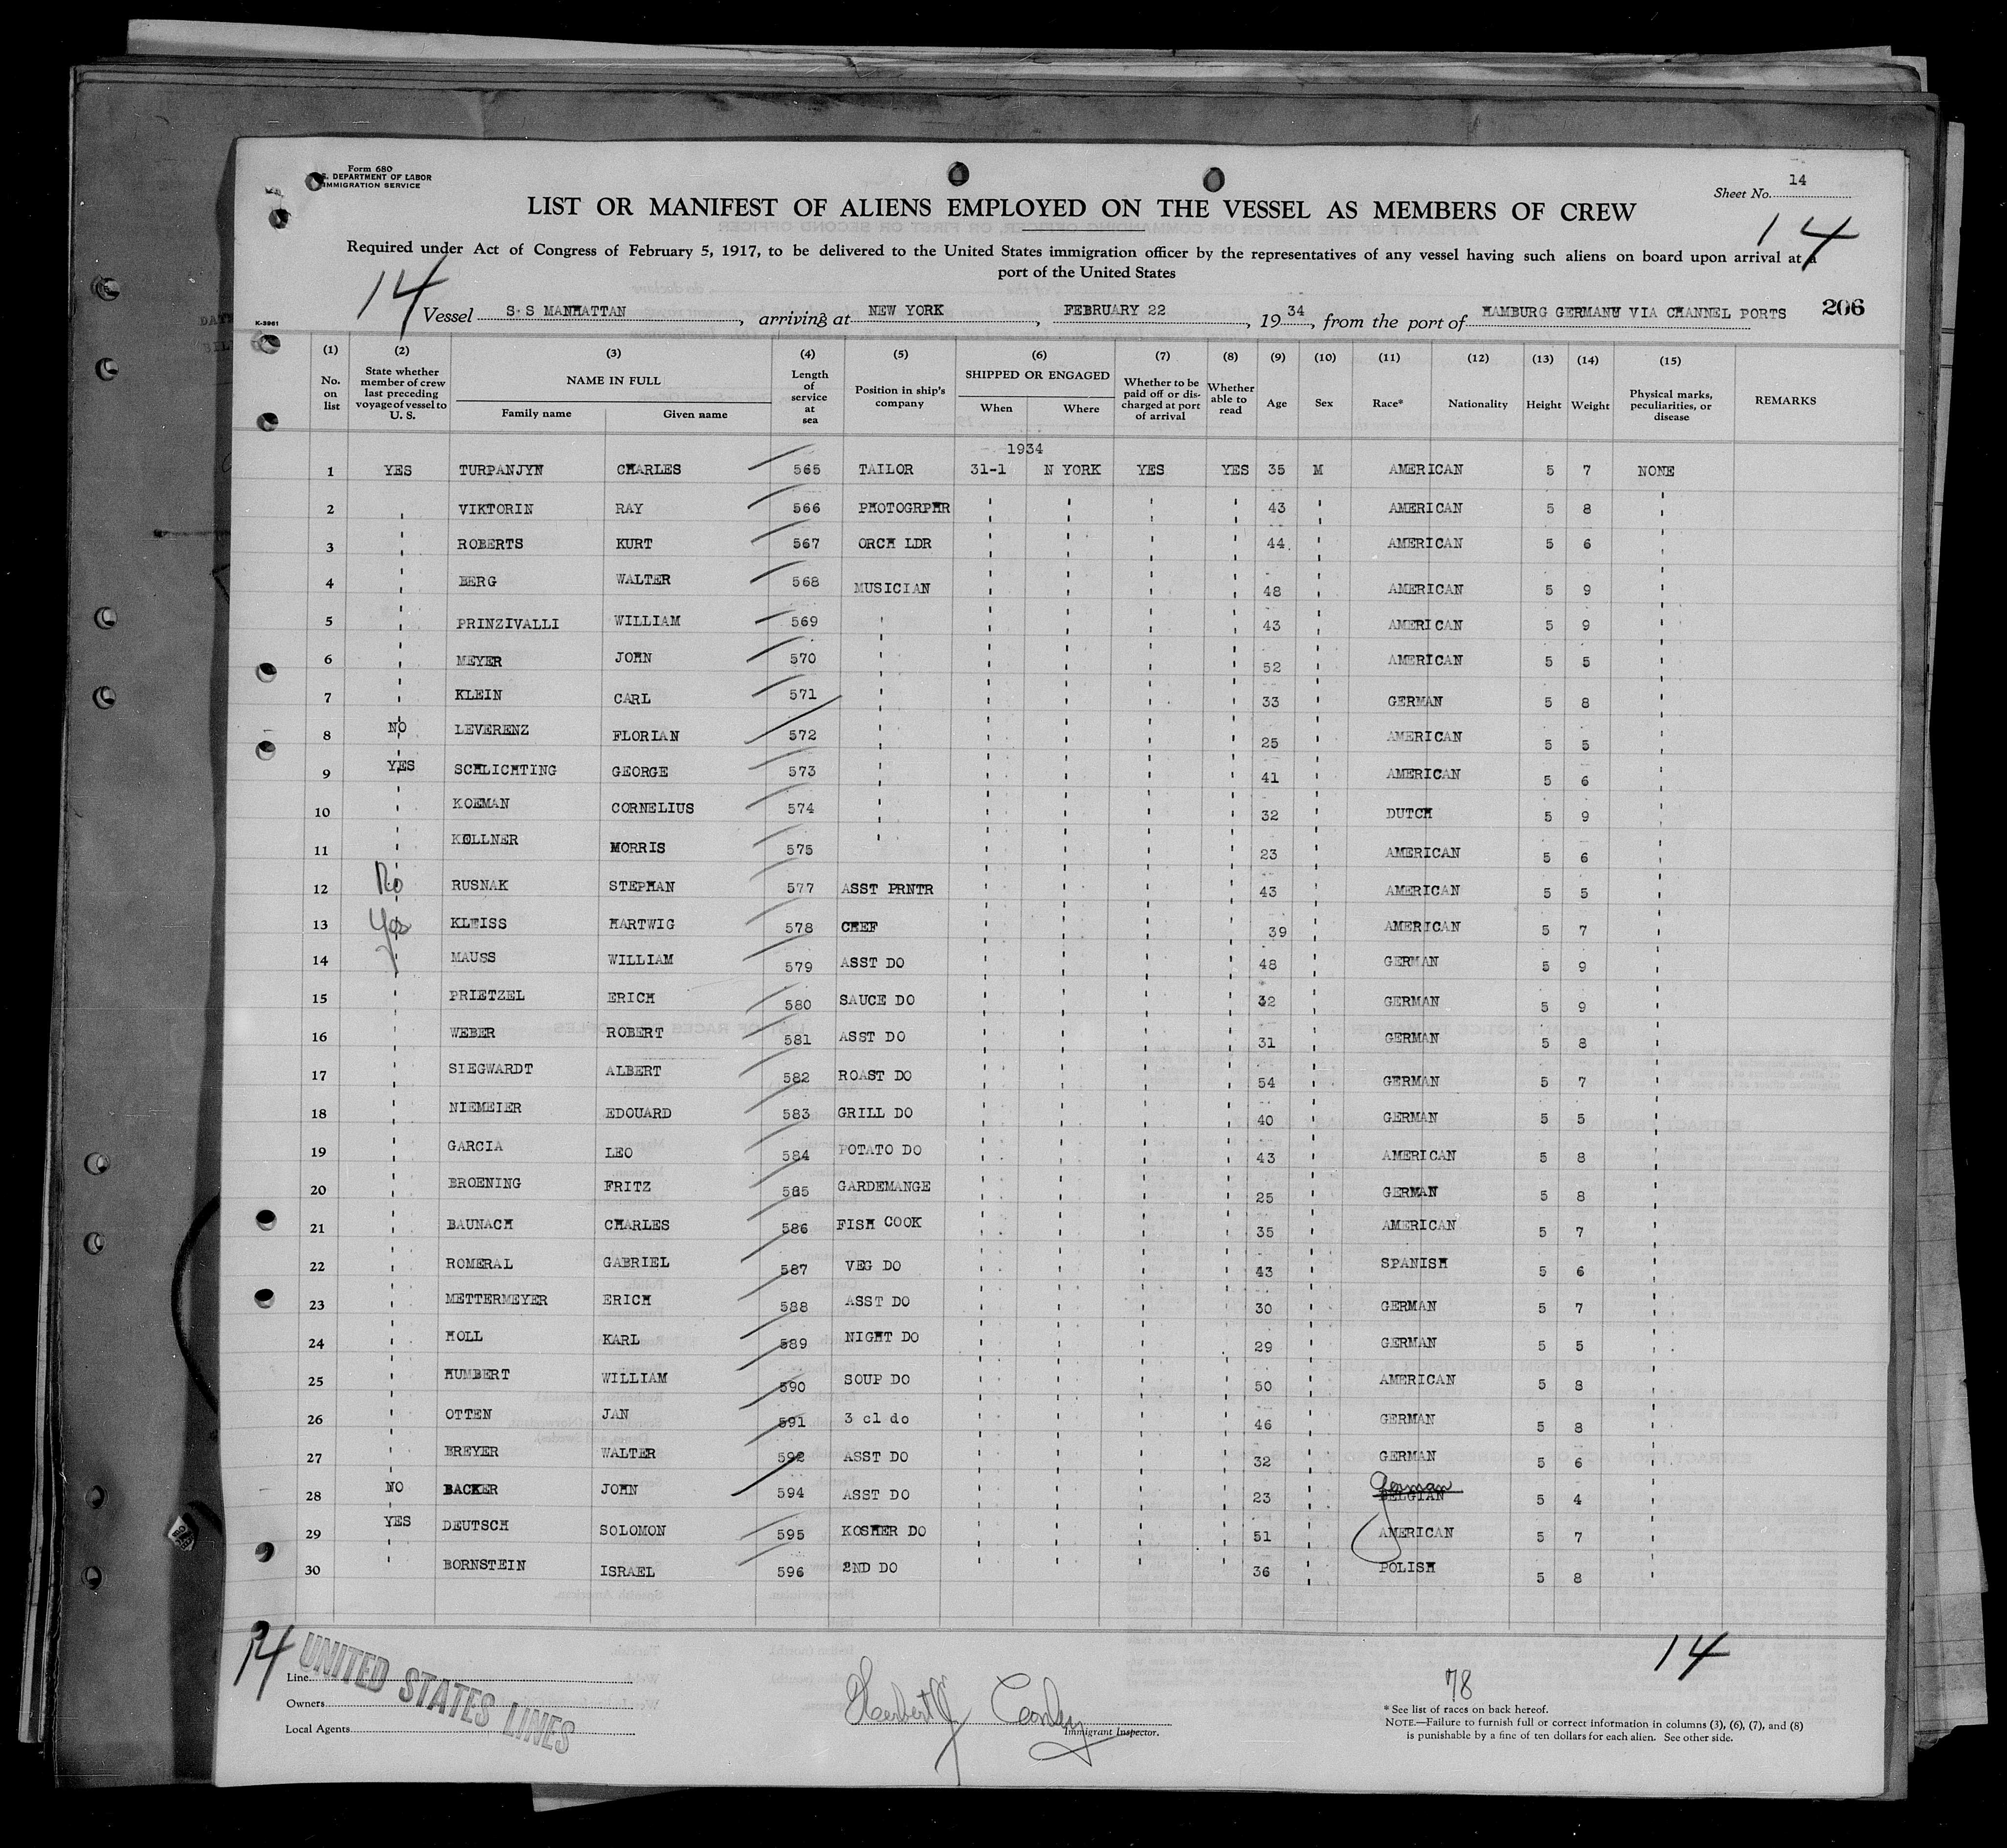 Form 680
DEPARTMENT OF LABOR
IMMIGRATION SERVICE
Sheet No. 14
LIST OR MANIFEST OF ALIENS EMPLOYED ON THE VESSEL AS MEMBERS OF CREW
14
Required under Act of Congress of February 5, 1917, to be delivered to the United States immigration officer by the representatives of any vessel having such aliens on board upon arrival at a
port of the United States
14
Vessel S.S MANHATTAN, arriving at NEW YORK, FEBRUARY 22, 1934, from the port of HAMBURG GERMANY VIA CHANNEL PORTS 206
K-3961
(1) (2) (3) (4) (5) (6) (7) (8) (9) (10) (11) (12) (13) (14) (15)
No. on list State whether member of crew last preceding voyage of vessel to U. S. NAME IN FULL Family name Given name Length of service at sea Position in ship's company SHIPPED OR ENGAGED When Where Whether to be paid off or discharged at port of arrival Whether able to read Age Sex Race* Nationality Height Weight Physical marks, peculiarities, or disease REMARKS
1934
1 YES TURPANJYN CHARLES 565 TAILOR 31-1 N YORK YES YES 35 M AMERICAN 5 7 NONE
2 " VIKTORIN RAY 566 PHOTOGRPHR " " " " 43 " AMERICAN 5 8 "
3 " ROBERTS KURT 567 ORCH LDR " " " " 44 " AMERICAN 5 6 "
4 " BERG WALTER 568 MUSICIAN " " " " 48 " AMERICAN 5 9 "
5 " PRINZIVALLI WILLIAM 569 " " " " " 43 " AMERICAN 5 9 "
6 " MEYER JOHN 570 " " " " " 52 " AMERICAN 5 5 "
7 " KLEIN CARL 571 " " " " " 33 " GERMAN 5 8 "
8 NO LEVERENZ FLORIAN 572 " " " " " 25 " AMERICAN 5 5 "
9 YES SCHLICHTING GEORGE 573 " " " " " 41 " AMERICAN 5 6 "
10 " KOEMAN CORNELIUS 574 " " " " " 32 " DUTCH 5 9 "
11 " KOLLNER MORRIS 575 " " " " " 23 " AMERICAN 5 6 "
12 No RUSNAK STEPHAN 577 ASST PRNTR " " " " 43 " AMERICAN 5 5 "
13 Yes KLEISS HARTWIG 578 CHEF " " " " 39 " AMERICAN 5 7 "
14 " MAUSS WILLIAM 579 ASST DO " " " " 48 " GERMAN 5 9 "
15 " PRIETZEL ERICH 580 SAUCE DO " " " " 32 " GERMAN 5 9 "
16 " WEBER ROBERT 581 ASST DO " " " " 31 " GERMAN 5 8 "
17 " SIEGWARDT ALBERT 582 ROAST DO " " " " 54 " GERMAN 5 7 "
18 " NIEMEIER EDOUARD 583 GRILL DO " " " " 40 " GERMAN 5 5 "
19 " GARCIA LEO 584 POTATO DO " " " " 43 " AMERICAN 5 8 "
20 " BROENING FRITZ 585 GARDEMANGE " " " " 25 " GERMAN 5 8 "
21 " BAUNACH CHARLES 586 FISH COOK " " " " 35 " AMERICAN 5 7 "
22 " ROMERAL GABRIEL 587 VEG DO " " " " 43 " SPANISH 5 6 "
23 " METTERMEYER ERICH 588 ASST DO " " " " 30 " GERMAN 5 7 "
24 " HOLL KARL 589 NIGHT DO " " " " 29 " GERMAN 5 5 "
25 " HUMBERT WILLIAM 590 SOUP DO " " " " 50 " AMERICAN 5 8 "
26 " OTTEN JAN 591 3 cl do " " " " 46 " GERMAN 5 8 "
27 " BREYER WALTER 592 ASST DO " " " " 32 " GERMAN 5 6 "
28 NO BACKER JOHN 594 ASST DO " " " " 23 " German BELGIAN 5 4 "
29 YES DEUTSCH SOLOMON 595 KOSHER DO " " " " 51 " AMERICAN 5 7 "
30 " BORNSTEIN ISRAEL 596 2ND DO " " " " 36 " POLISH 5 8 "
14 14
UNITED STATES LINES
Line
Owners
Local Agents
Herbert J
Immigrant Inspector.
78
* See list of races on back hereof.
NOTE.—Failure to furnish full or correct information in columns (3), (6), (7), and (8)
is punishable by a fine of ten dollars for each alien. See other side.